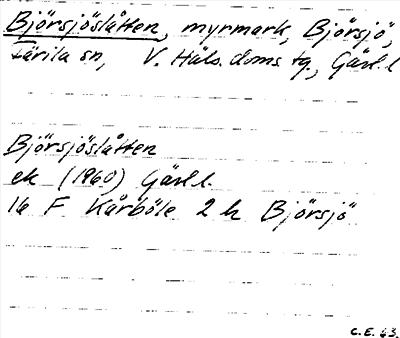 Björsjöslåtten, myrmark, Björsjö,
Färila sn, V. Häls. doms. tg, Gävl. l
Björsjöslåtten
ek (1960) Gävl. l.
16 F Kårböle 2 h Björsjö
C.E. 63.